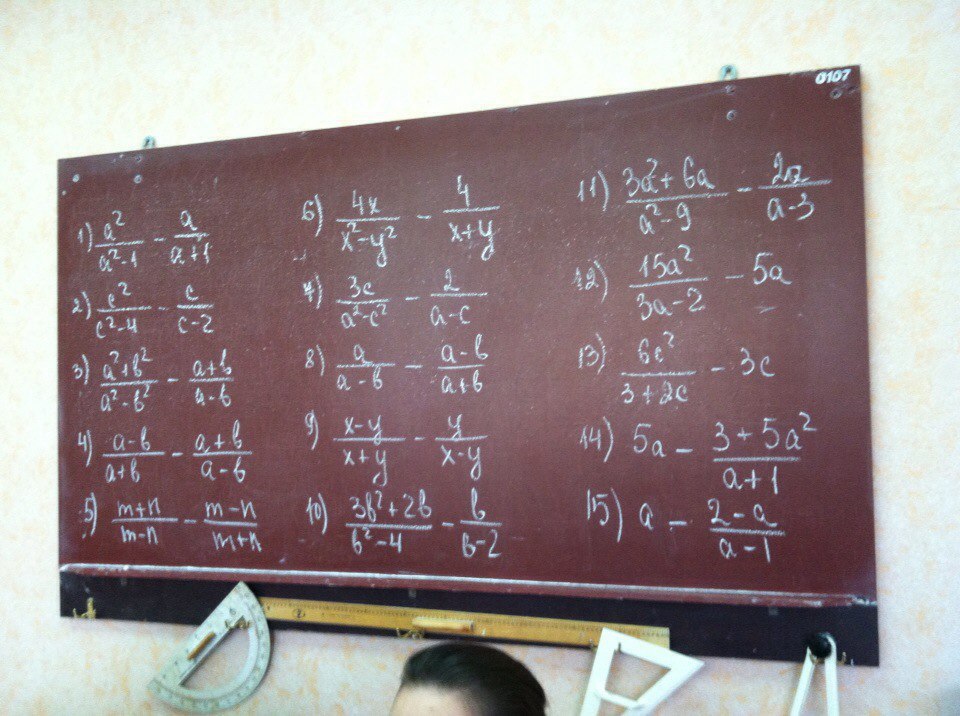 0107
1) a²/(a²-1) - a/(a+1)
2) c²/(c²-4) - c/(c-2)
3) (a²+b²)/(a²-b²) - (a+b)/(a-b)
4) (a-b)/(a+b) - (a+b)/(a-b)
5) (m+n)/(m-n) - (m-n)/(m+n)
6) 4x/(x²-y²) - 4/(x+y)
7) 3c/(a²-c²) - 2/(a-c)
8) a/(a-b) - (a-b)/(a+b)
9) (x-y)/(x+y) - y/(x-y)
10) (3b²+2b)/(b²-4) - b/(b-2)
11) (3a²+6a)/(a²-9) - 2a/(a-3)
12) 15a²/(3a-2) - 5a
13) 6c²/(3+2c) - 3c
14) 5a - (3+5a²)/(a+1)
15) a - (2-a)/(a-1)